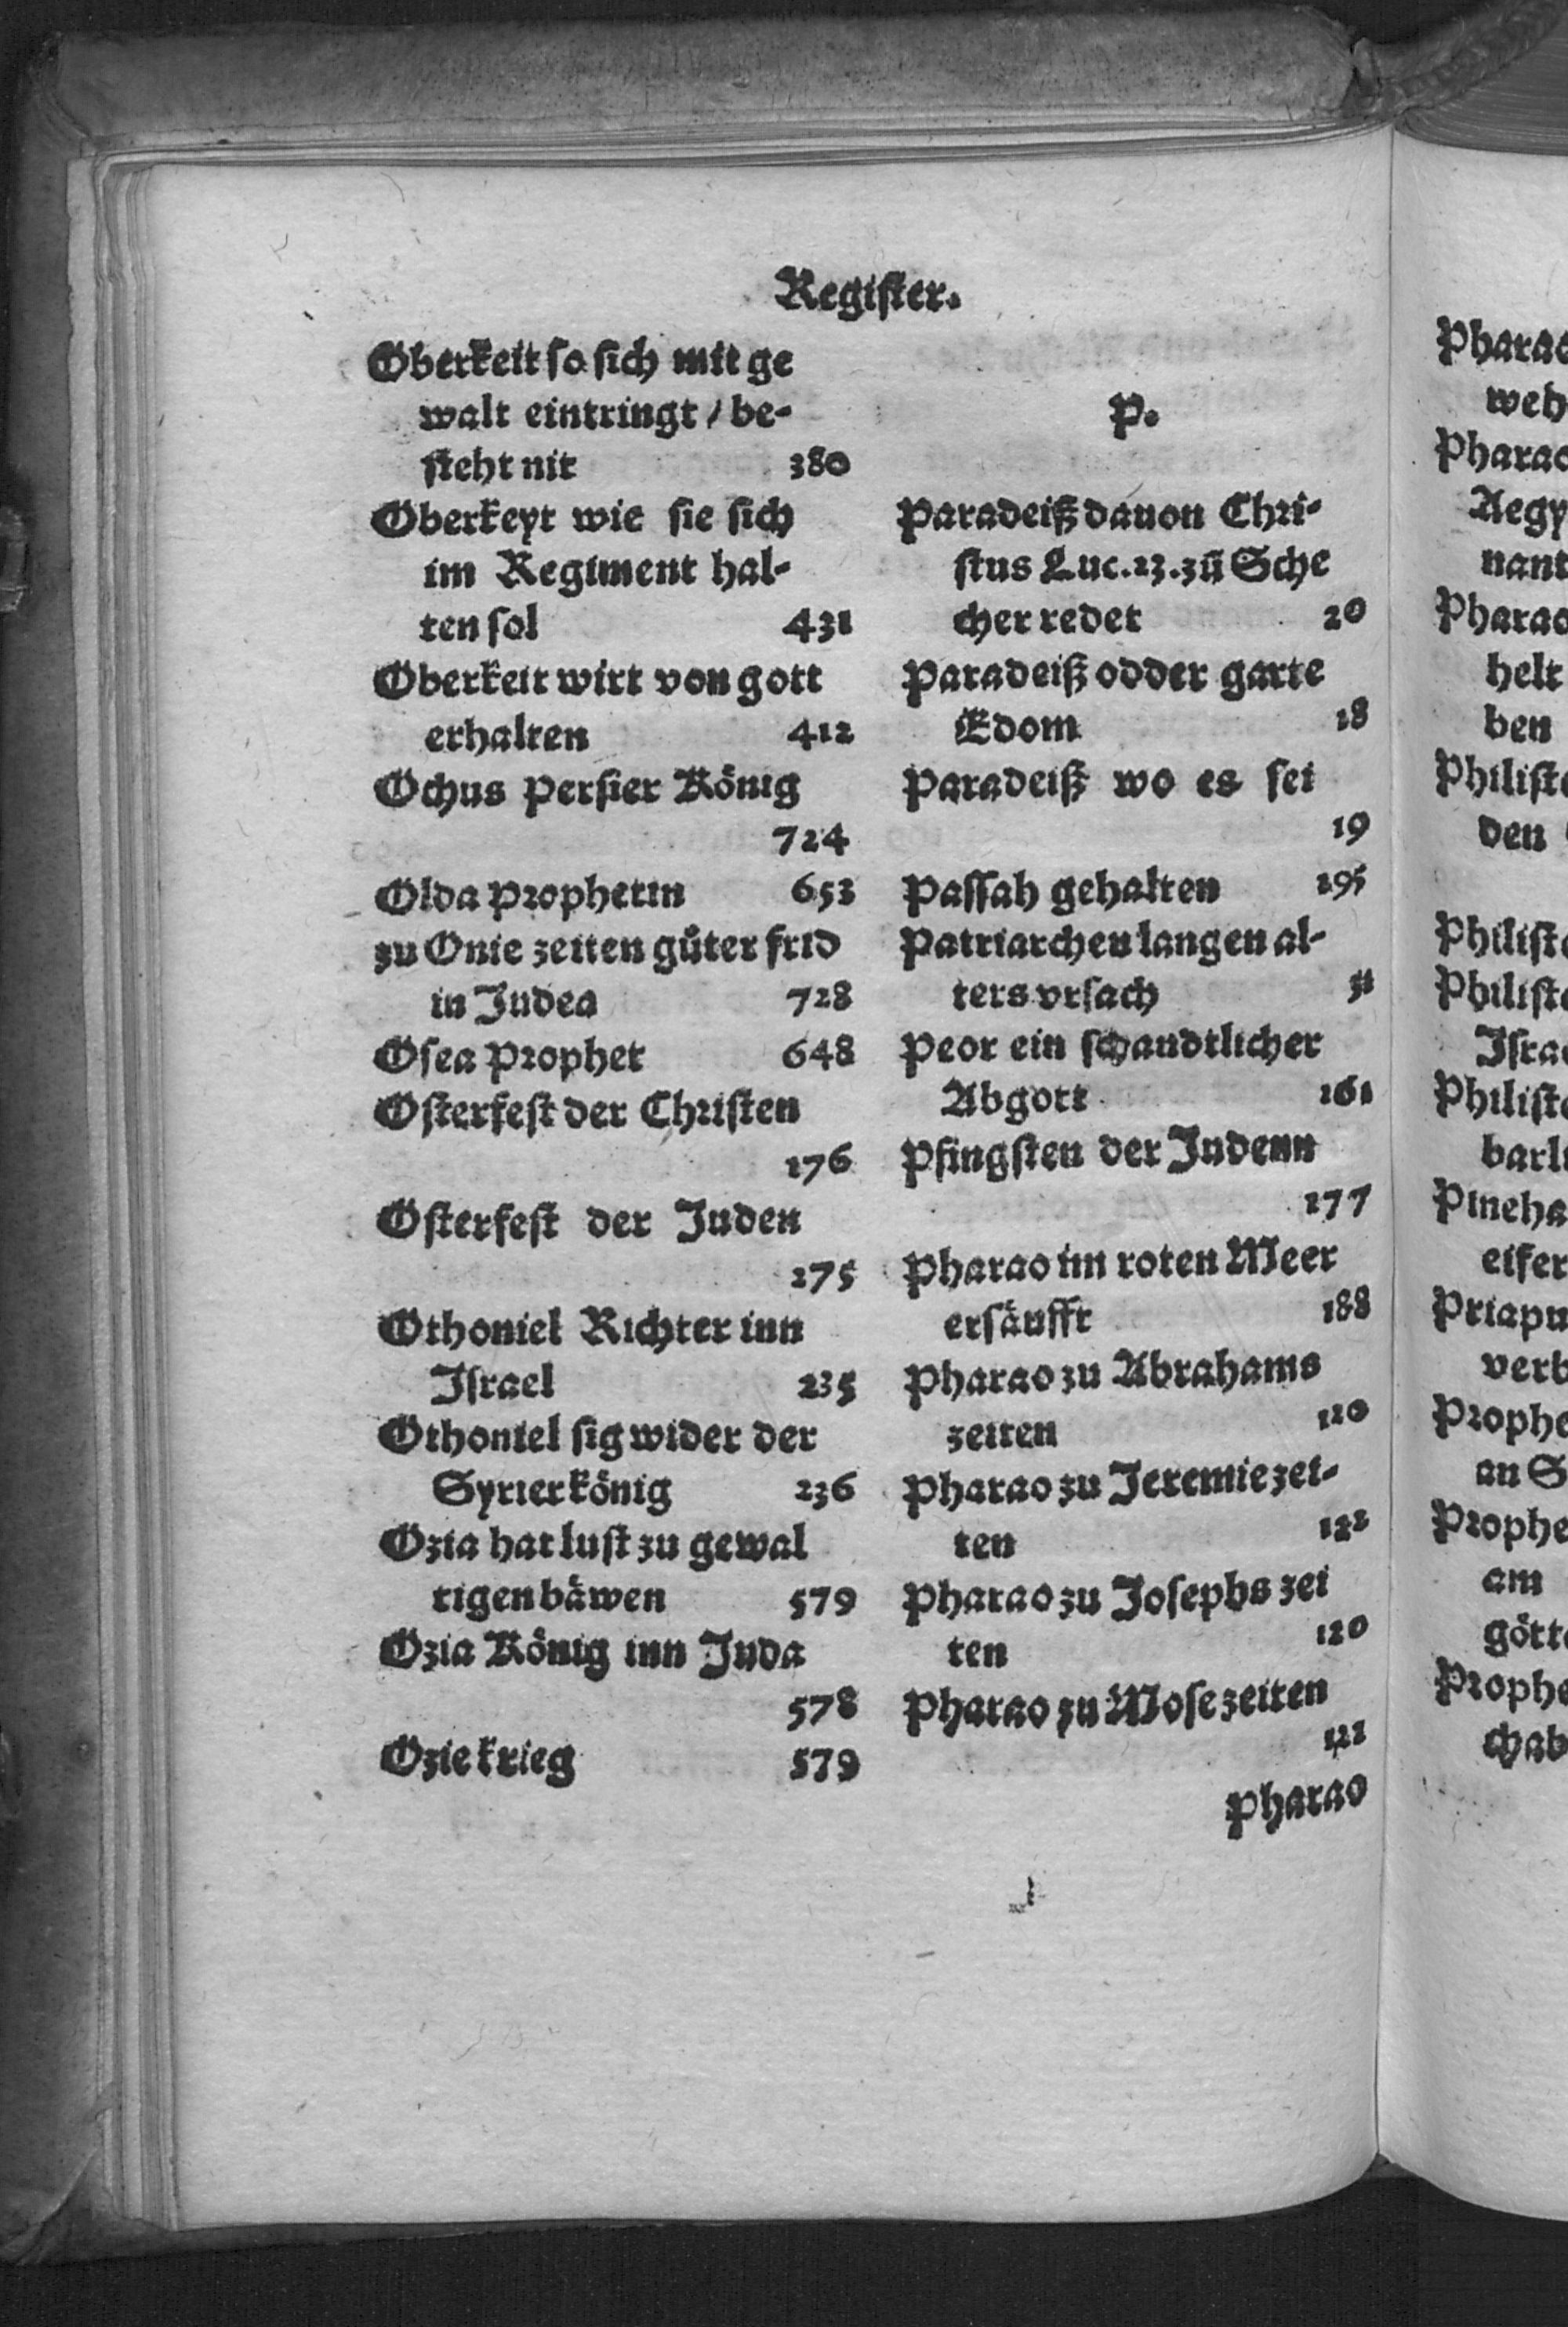 Regiſter.
Oberkeit ſo ſich mit ge
walt eintringt / be-
ſteht nit 380
Oberkeyt wie ſie ſich
im Regiment hal-
ten ſol 431
Oberkeit wirt von gott
erhalten 412
Ochus Perſier König
724
Olda Prophetin 653
zu Onie zeiten gůter frid
in Judea 728
Oſea Prophet 648
Oſterfeſt der Chriſten
176
Oſterfeſt der Juden
175
Othoniel Richter inn
Iſrael 235
Othoniel ſig wider der
Syrier könig 236
Ozia hat luſt zu gewal
tigen bäwen 579
Ozia König inn Juda
578
Ozie krieg 579
P.
Paradeiß dauon Chri-
ſtus Luc. 23. zů Sche
cher redet 20
Paradeiß odder garte
Edom 18
Paradeiß wo es ſei
19
Paſſah gehalten 195
Patriarchen langen al-
ters vrſach 51
Peor ein ſchandtlicher
Abgott 161
Pfingſten der Judenn
177
Pharao im roten Meer
erſäufft 188
Pharao zu Abrahams
zeiten 120
Pharao zu Jeremie zei-
ten 122
Pharao zu Joſephs zei
ten 120
Pharao zu Moſe zeiten
121
Pharao
weh
Pharao
Aegy
nant
Pharao
helt
ben
den
Iſra
eifer
verb
an S
am